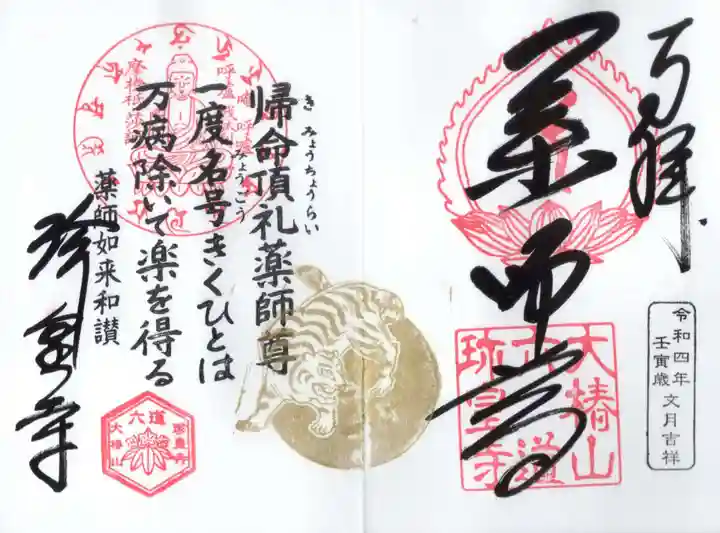 奉拝
薬師尊
大椿山
六道
珍皇寺
令和四年
壬寅歳 文月吉祥
帰命頂礼薬師尊
きみょうちょうらい
一度名号きくひとは
みょうごう
万病除いて楽を得る
薬師如来和讃
珍皇寺
六道
珍皇寺
大椿山